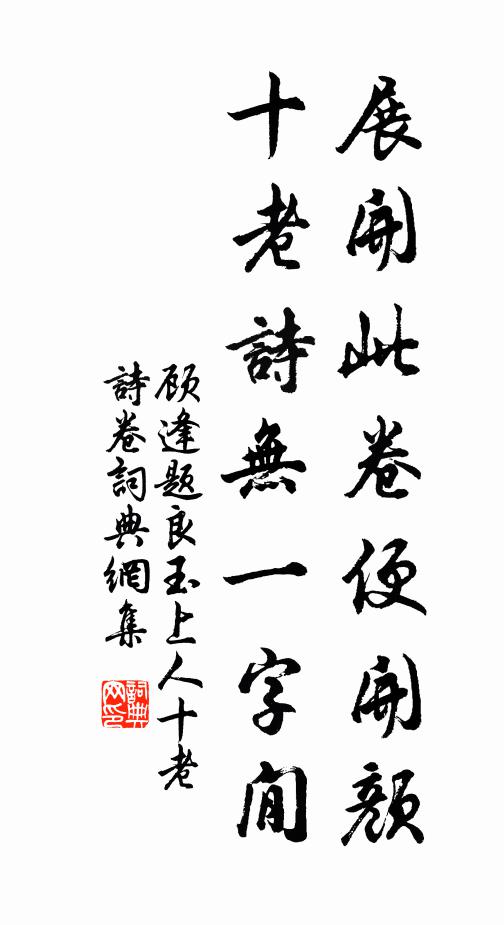 展開此卷便開顏
十老詩無一字閒
顧逢題良玉上人十老
詩卷詞典網集
詞典
网印